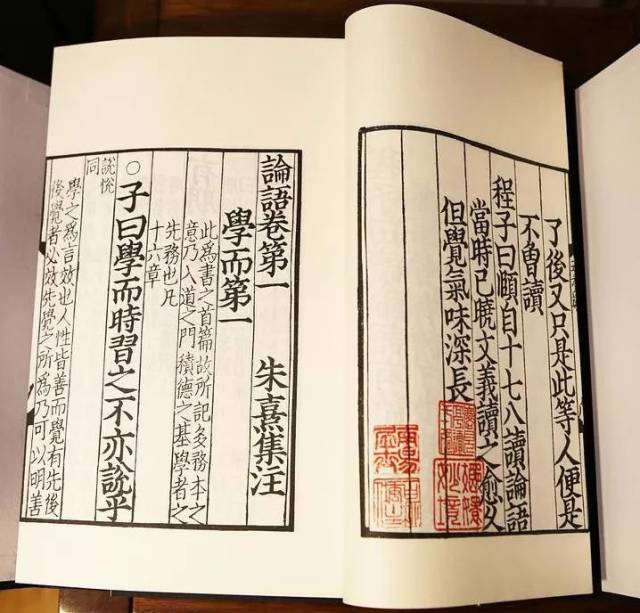 了後又只是此等人便是
不曾讀
程子曰頤自十七八讀論語
當時已曉文義讀之愈久
但覺氣味深長
論語卷第一 朱熹集注
學而第一
此爲書之首篇故所記多務本之
意乃入道之門積德之基學者之
先務也凡
十六章
○子曰學而時習之不亦說乎
說悅
同
學之爲言效也人性皆善而覺有先後
後覺者必效先覺之所爲乃可以明善